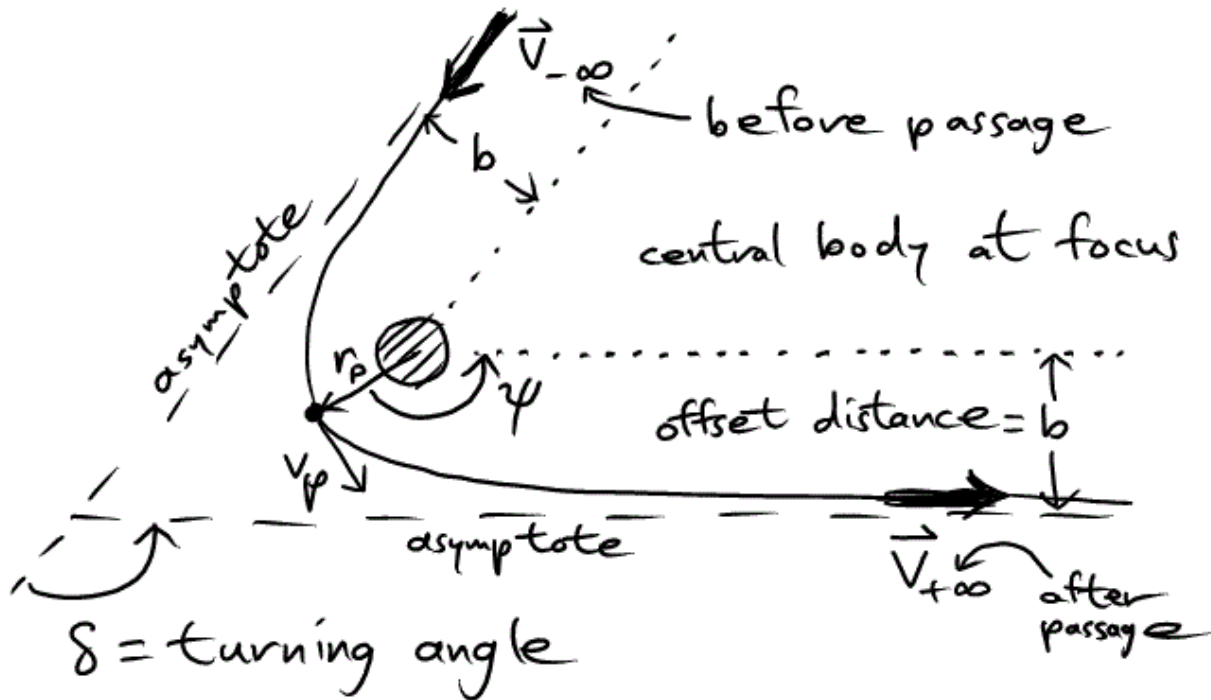 V⃗₋∞
before passage
b
asymptote
central body at focus
rₚ
ψ
offset distance = b
vₚ
asymptote
V⃗₊∞
after
passage
δ = turning angle